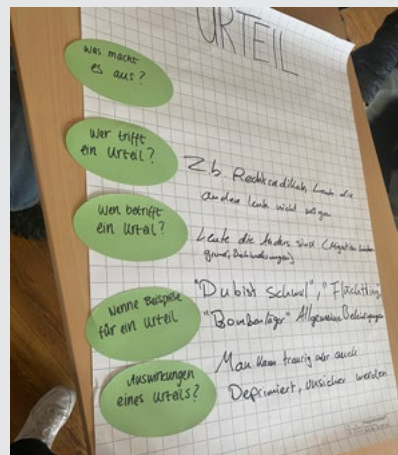 URTEIL
Was macht
es aus?
Wer trifft
ein Urteil?
Z.b. Rechtsradikale, Leute die
andere leute nicht mögen
Wen betrifft
ein Urteil?
Leute die Anders sind (Migration
Nenne Beispiele
für ein Urteil
"Du bist schwul", "Flüchtling"
"Bombenleger" Allgemein Beleidigungen
Auswirkungen
eines Urteils?
Man kann traurig oder auch
Deprimiert, unsicher werden